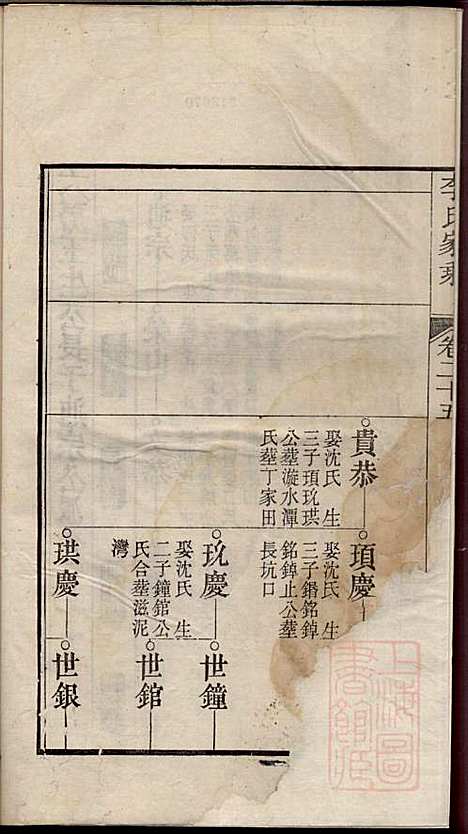 李氏家乘
卷二十五
貴恭
娶沈氏 生
三子頊玖珙
公葬漩水潭
氏葬丁家田
頊慶
娶沈氏 生
三子鐕銘鋽
銘鋽止公葬
長坑口
玖慶
娶沈氏 生
二子鐘錧公
氏合葬滋泥
灣
珙慶
世鐘
世錧
世銀
上海圖
書館藏